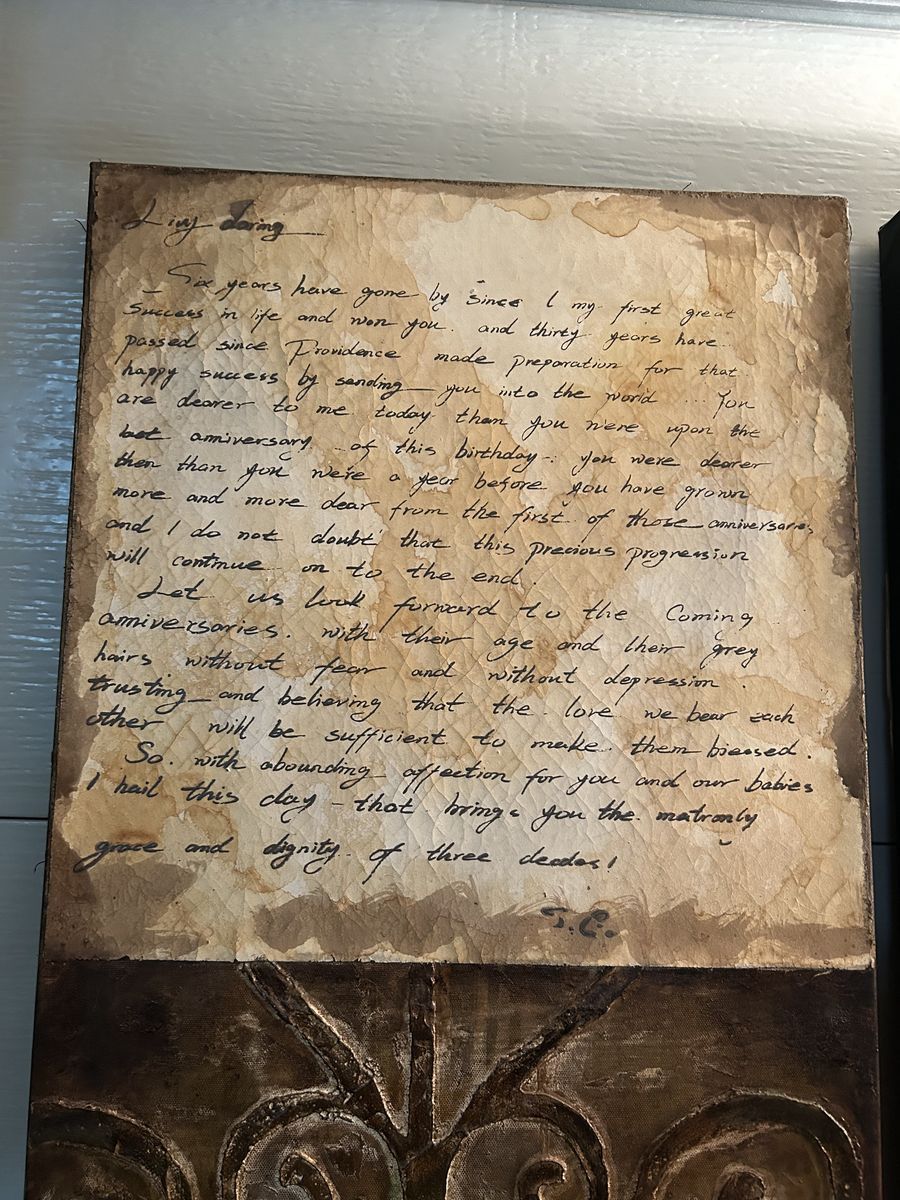 Livy daring
Six years have gone by since I my first great
success in life and won you. and thirty years have
passed since Providence made preparation for that
happy success by sending you into the world ... You
are dearer to me today than you were upon the
last anniversary of this birthday - you were dearer
then than you were a year before you have grown
more and more dear from the first of those anniversaries,
and I do not doubt that this precious progression
will continue on to the end.
Let us look forward to the Coming
anniversaries. with their age and their grey
hairs without fear and without depression.
trusting and believing that the love we bear each
other will be sufficient to make them blessed.
So. with abounding affection for you and our babies
I hail this day - that brings you the matronly
grace and dignity of three deades!
S.C.